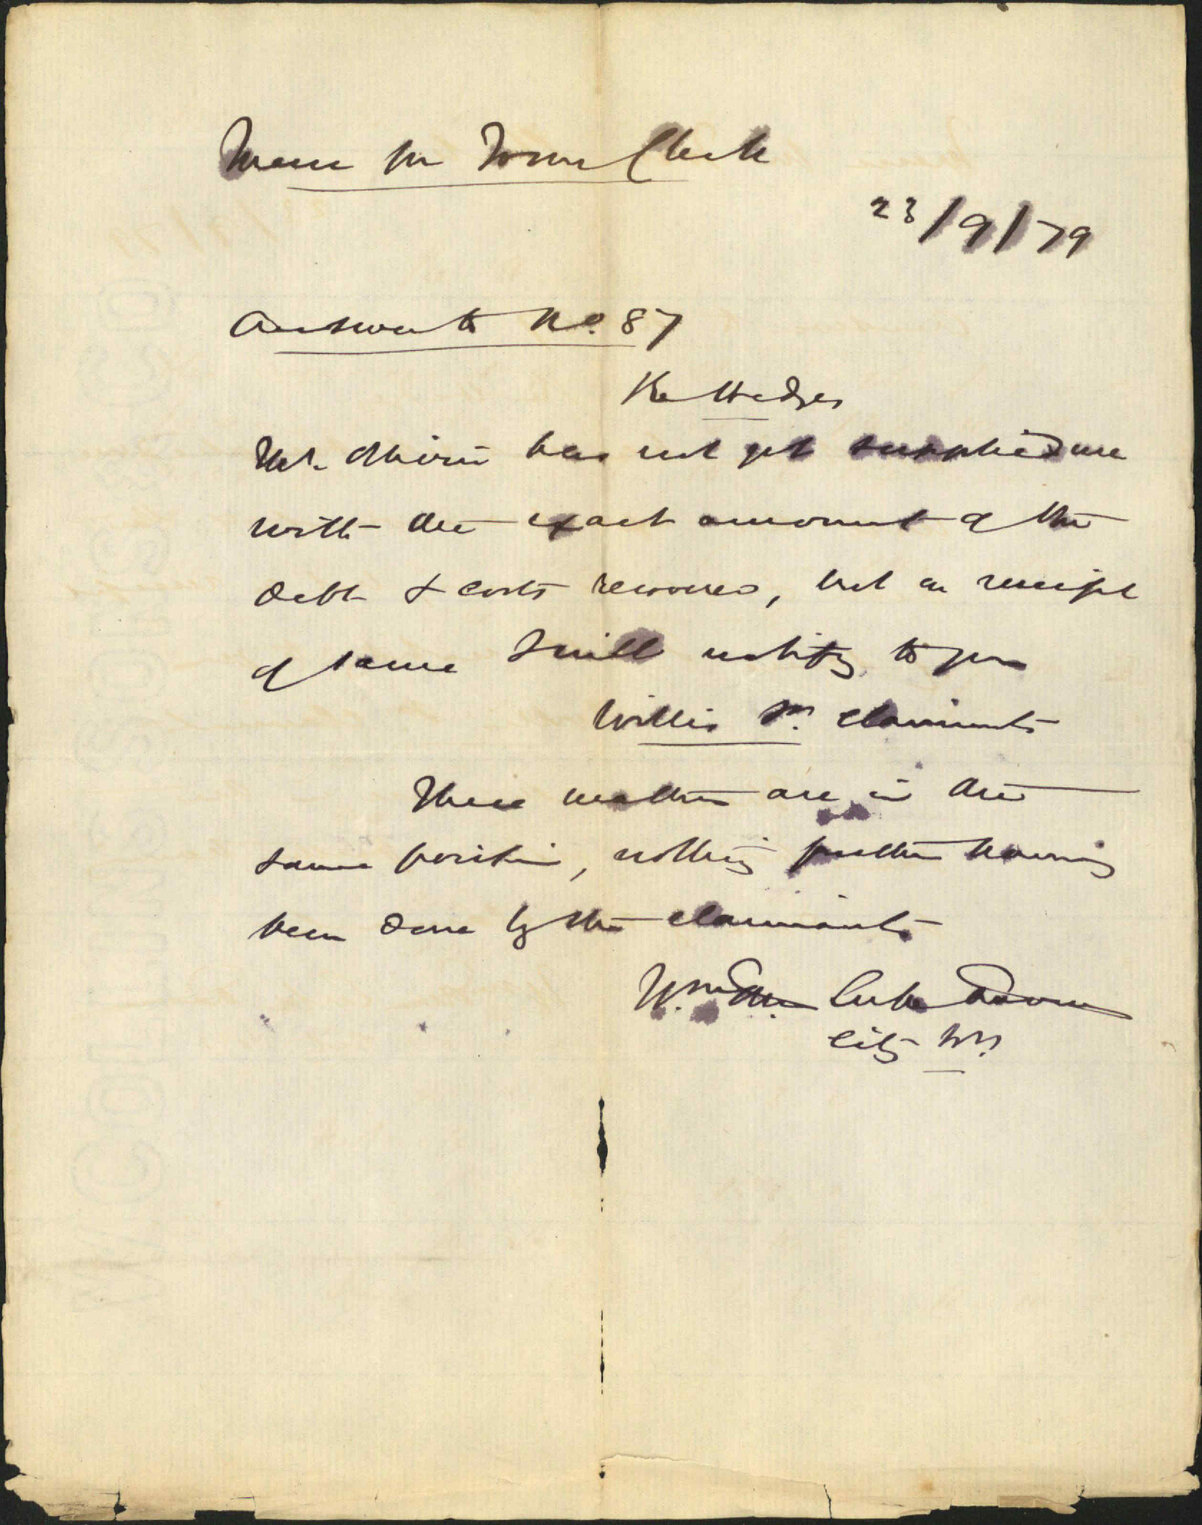 Memo for Town Clerk
23/9/79
Answer to No. 87
Re Hedges
Mr. has not yet supplied me
with the exact amount of the
debt & costs recovered, but on receipt
of same I will notify to you
Willis & claimants
These matters are in the
same position, nothing further having
been done by the claimants
Wm
City